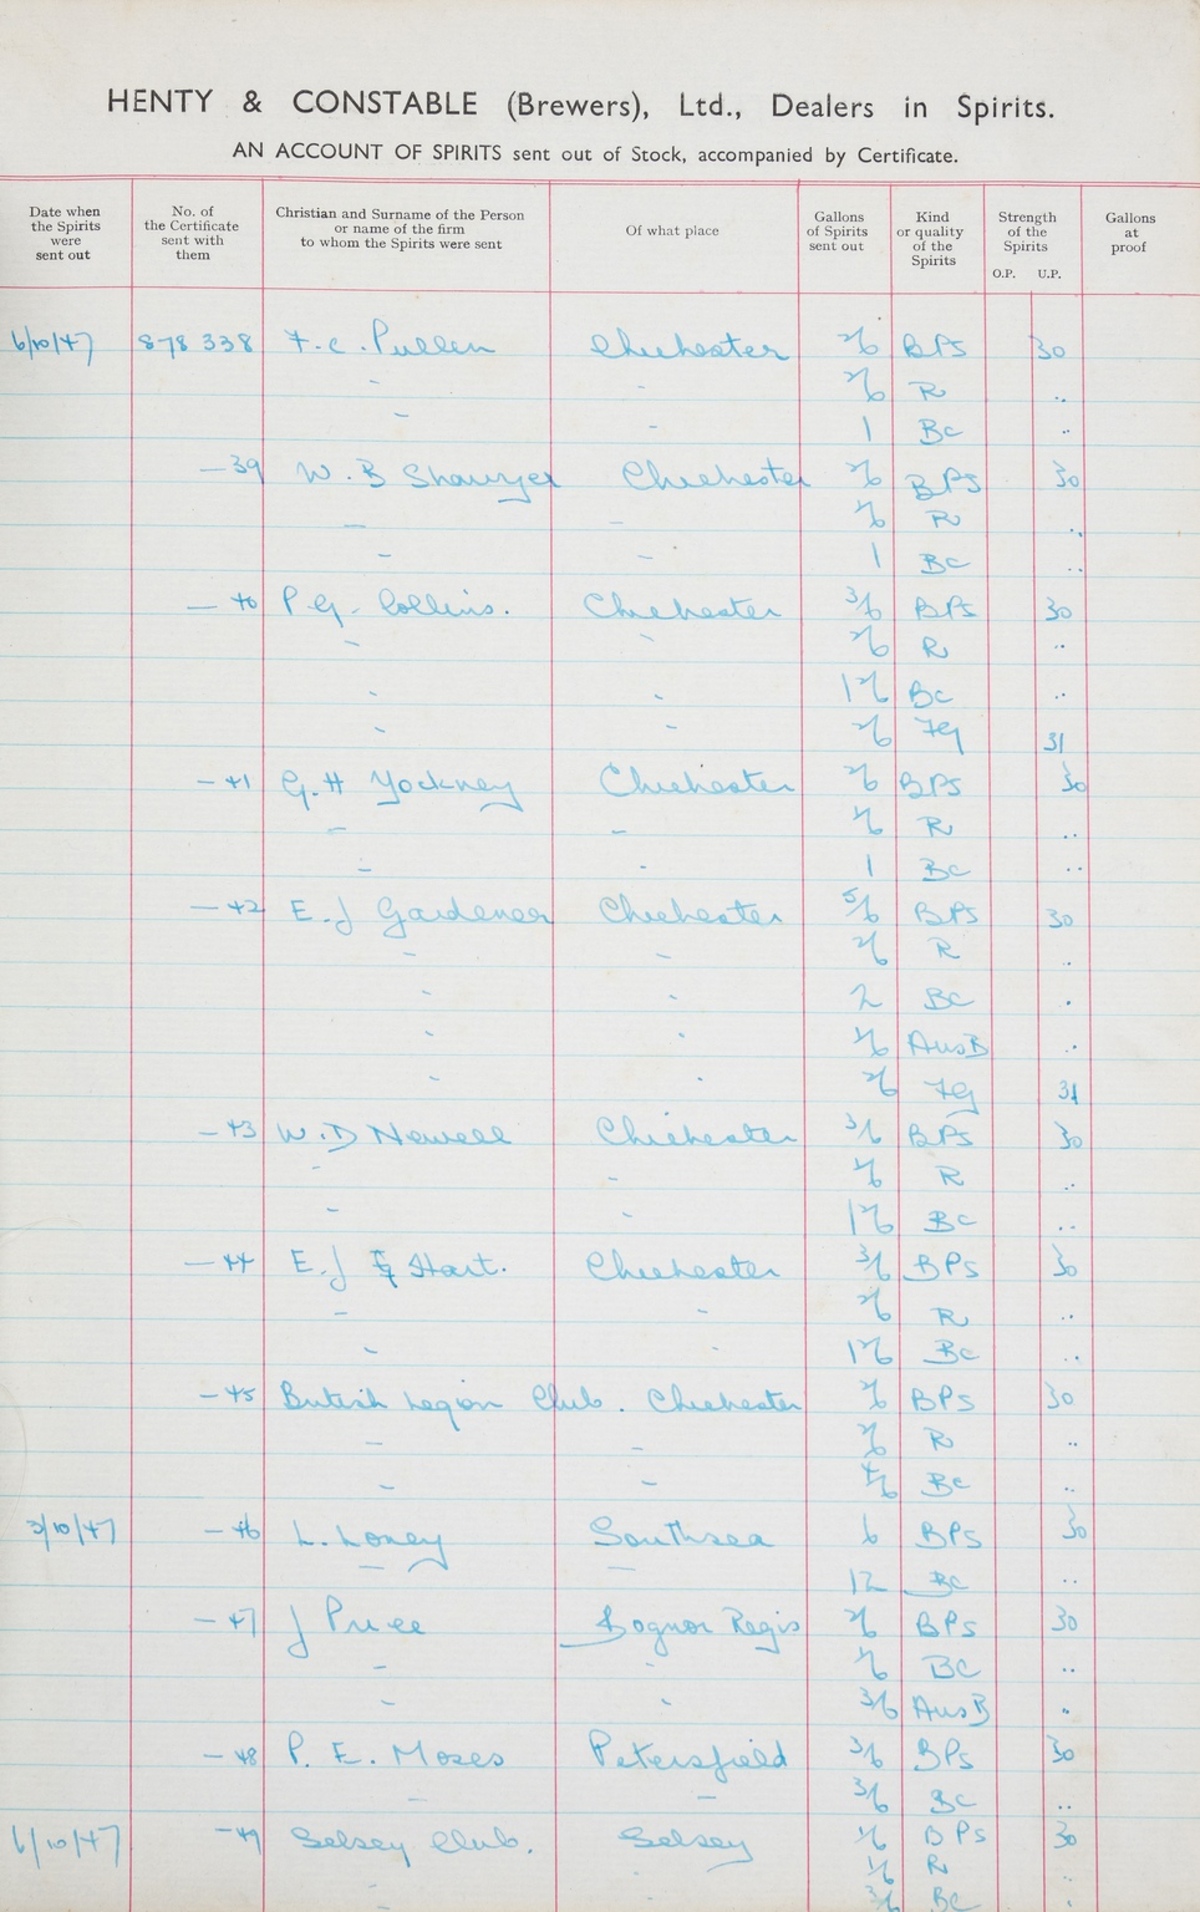 HENTY & CONSTABLE (Brewers), Ltd., Dealers in Spirits.
AN ACCOUNT OF SPIRITS sent out of Stock, accompanied by Certificate.
Date when the Spirits were sent out No. of the Certificate sent with them Christian and Surname of the Person or name of the firm to whom the Spirits were sent Of what place Gallons of Spirits sent out Kind or quality of the Spirits Strength of the Spirits O.P. U.P. Gallons at proof
6/10/47 878 338 F. C. Pullen Chichester 2/6 BPS 30
- - 2/6 R ..
- - 1 BC ..
— 39 W. B Shawyer Chichester 2/6 BPS 30
— — R ..
- - 1 BC ..
— 40 P. G. Collins. Chichester 3/6 BPS 30
- - 2/6 R ..
- - 1 2/6 BC ..
- - 2/6 FG 31
— 41 G. H Yockney Chichester 2/6 BPS 30
— — 1/6 R ..
- - 1 BC ..
— 42 E. J Gardener Chichester 5/6 BPS 30
- - 2/6 R .
- - 2 BC .
- - 1/6 AusB ..
- - 2/6 FG 31
— 43 W. D Newell Chichester 3/6 BPS 30
- - 1/6 R ..
- - 1 2/6 BC ..
— 44 E. J Hart. Chichester 3/6 BPS 30
- - 2/6 R ..
- - 1 2/6 BC ..
— 45 British Legion Club. Chichester 2/6 BPS 30
— — 2/6 R ..
- — 4/6 BC ..
3/10/47 — 46 L. Loney Southsea 6 BPS 30
— — 12 BC ..
— 47 J Price Bognor Regis 2/6 BPS 30
- - 1/6 BC ..
- - 3/6 AusB .
— 48 P. E. Moses Petersfield 3/6 BPS 30
— — 3/6 BC ..
6/10/47 — 49 Selsey Club. Selsey 1/6 BPS 30
- - 1/6 R ..
- - 3/6 BC .